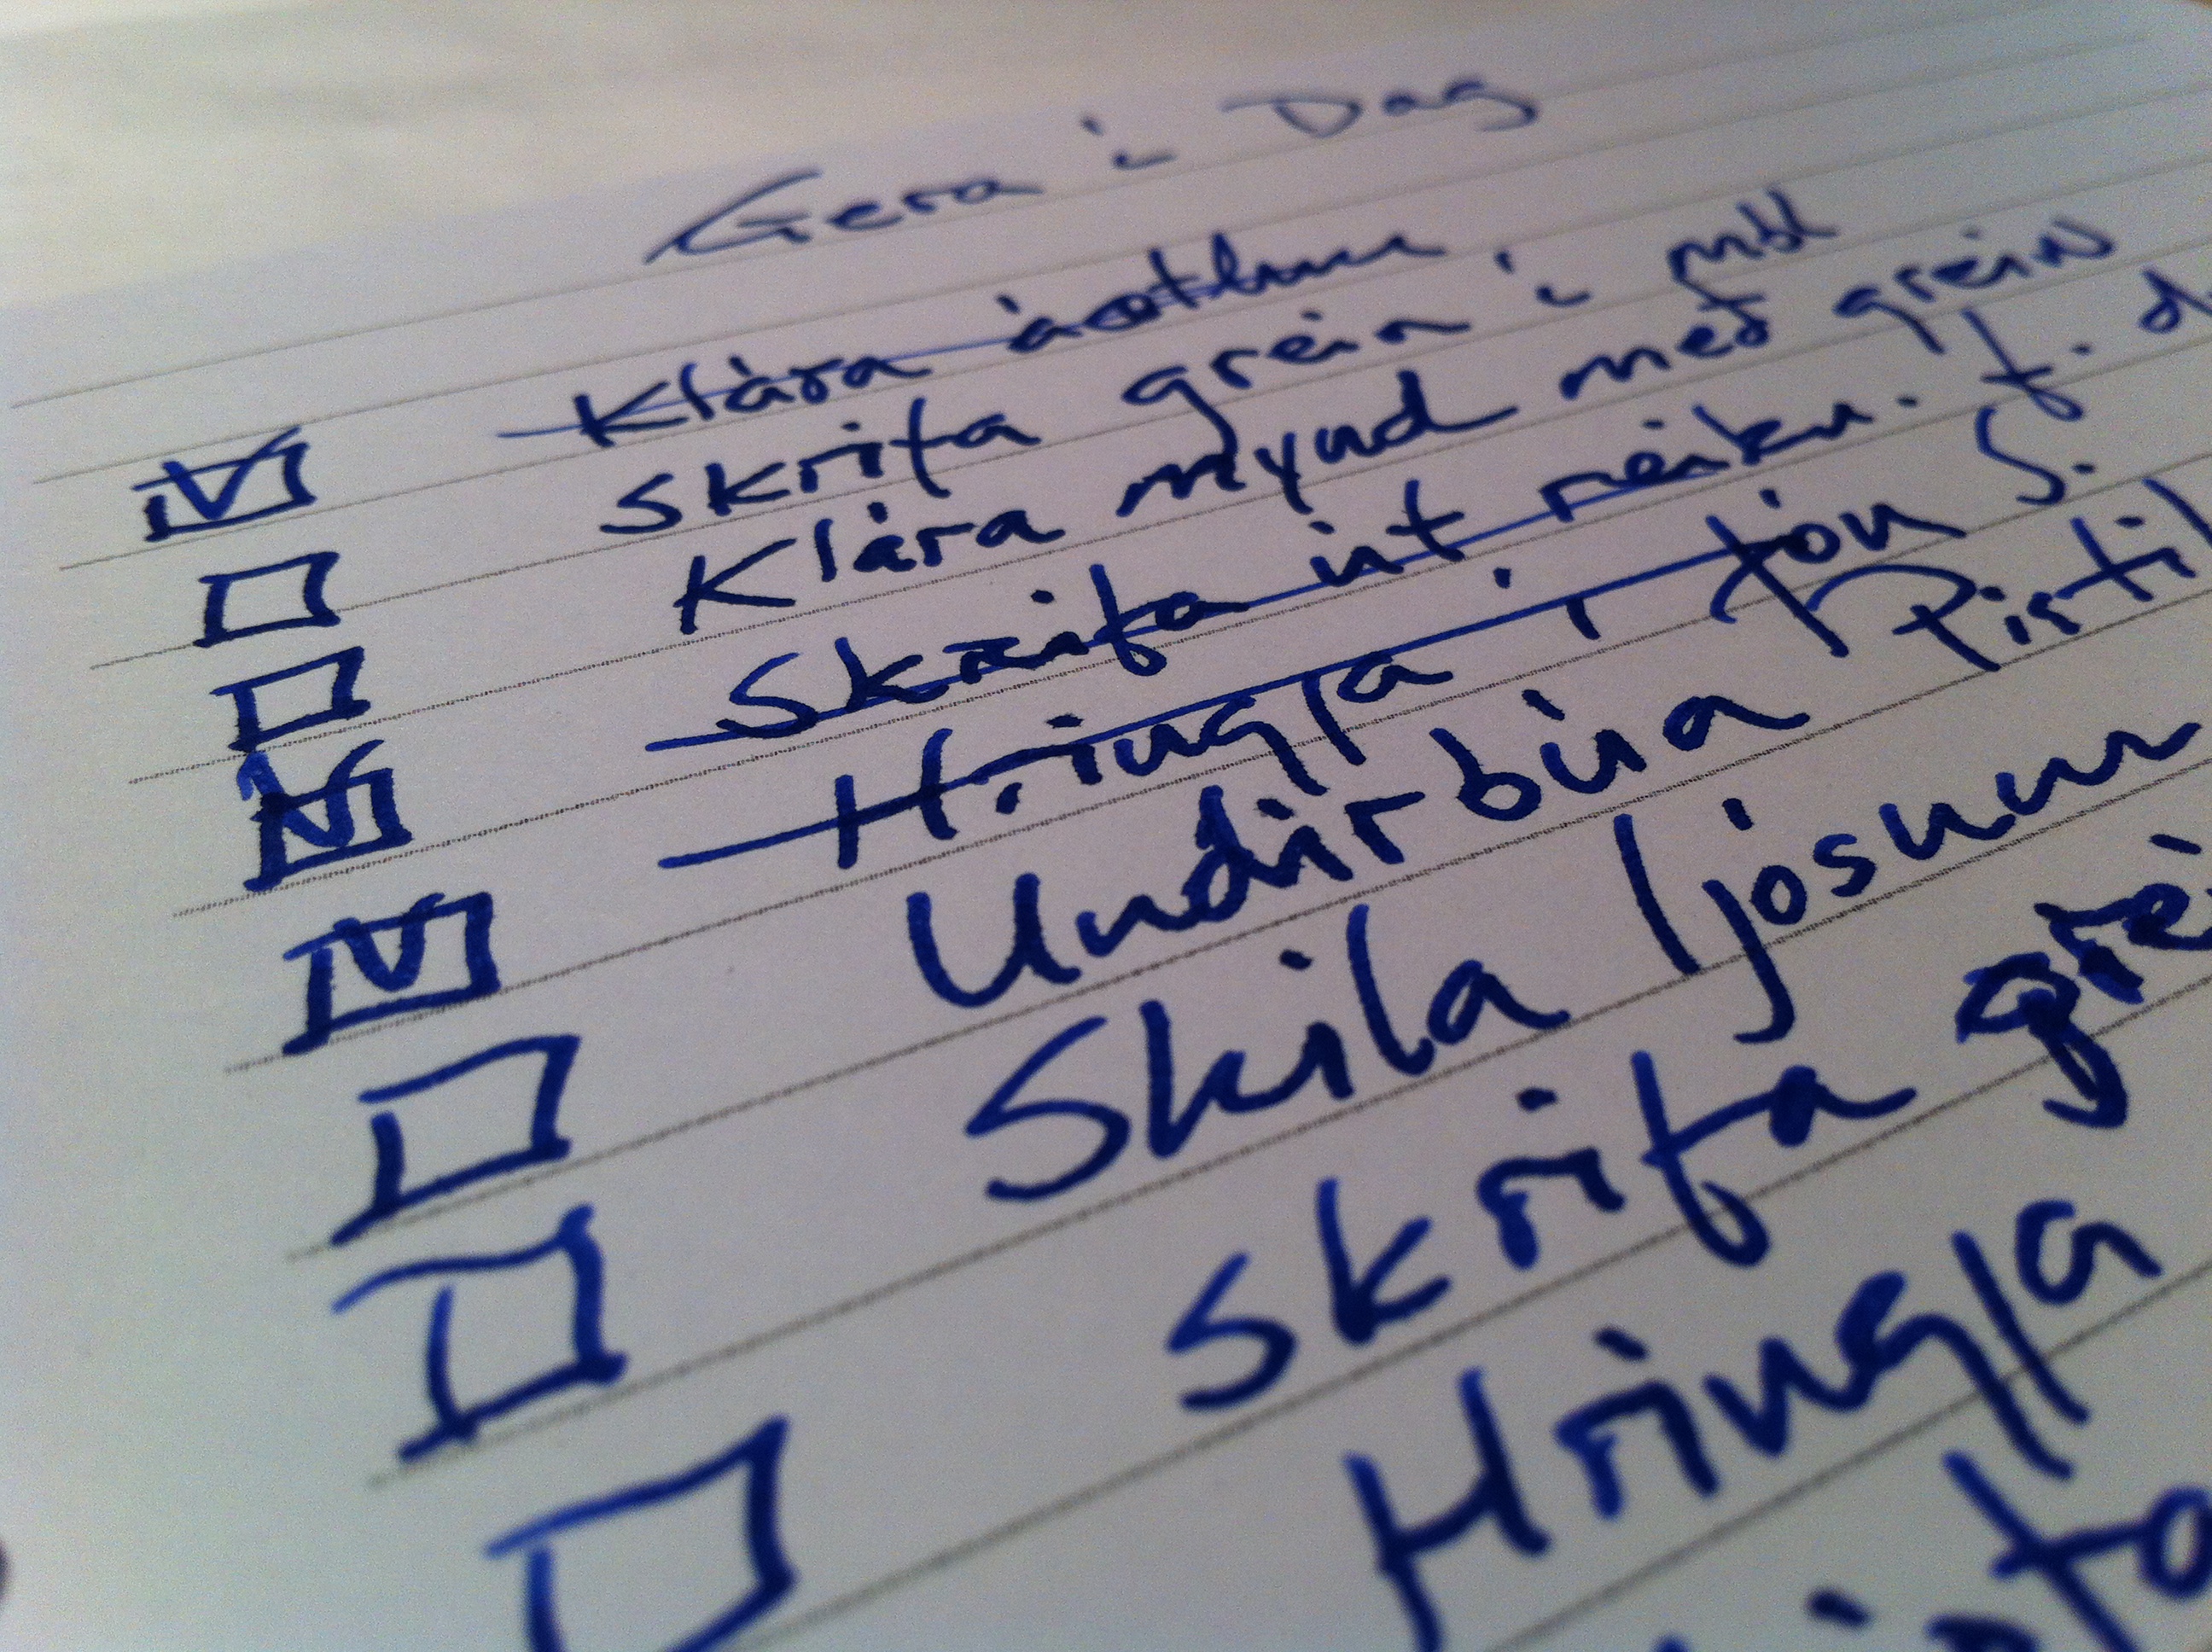 Gera í Dag
Klára áætlun
Skrifa grein í mbl
Klára mynd með grein
Skrifa út reikn. f.
Hringja í Jón S.
Undirbúa
Skila ljósum
Skrifa
Hringja